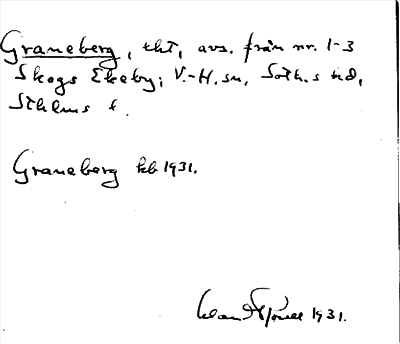 Graneberg, tht, avs. från nr. 1-3
Skogs Ekeby; V.-H. sn, Soth.s hd,
Sthlms l.
Graneberg kb 1931.
1931.